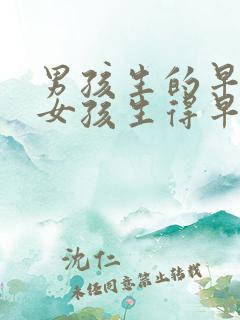 男孩生的早
女孩生得早
沈仁
未经同意禁止转载